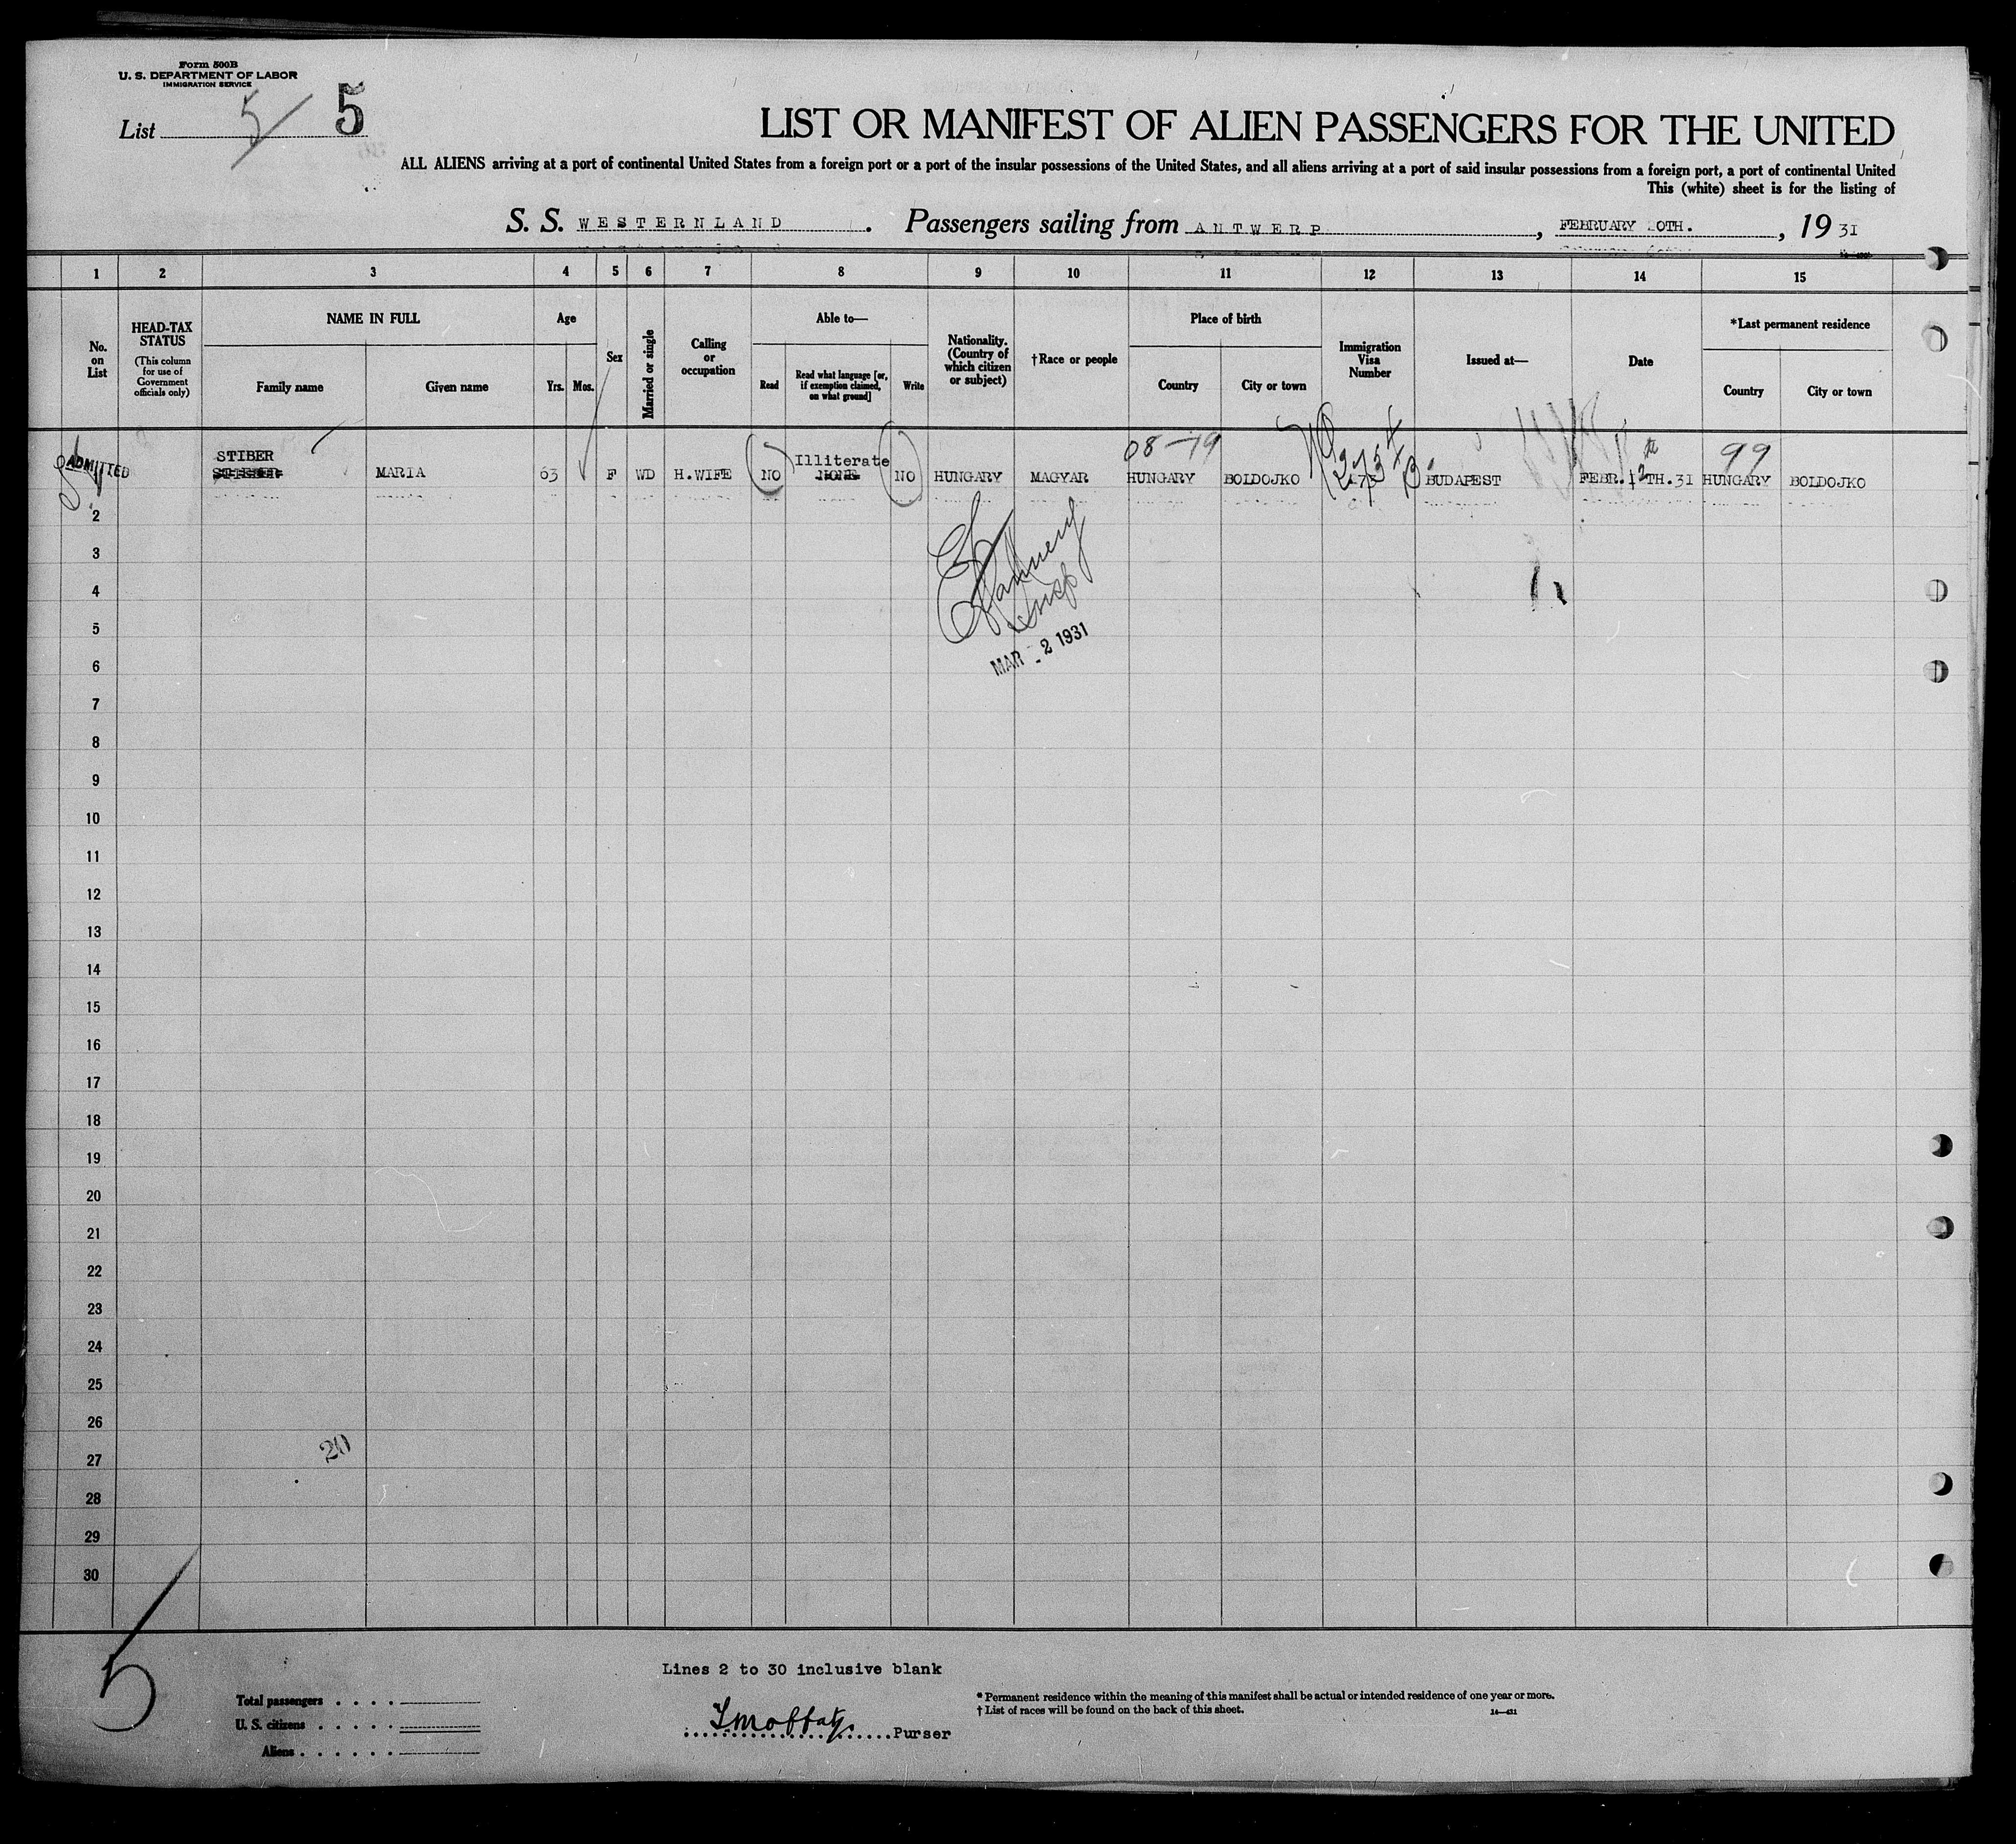 Form 500B
U. S. DEPARTMENT OF LABOR
IMMIGRATION SERVICE
List 5 5
LIST OR MANIFEST OF ALIEN PASSENGERS FOR THE UNITED
ALL ALIENS arriving at a port of continental United States from a foreign port or a port of the insular possessions of the United States, and all aliens arriving at a port of said insular possessions from a foreign port, a port of continental United
This (white) sheet is for the listing of
S. S. WESTERNLAND. Passengers sailing from ANTWERP, FEBRUARY 20TH., 1931
1 2 3 4 5 6 7 8 9 10 11 12 13 14 15
No. on List
HEAD-TAX STATUS
(This column for use of Government officials only)
NAME IN FULL
Family name
Given name
Age
Yrs. Mos.
Sex
Married or single
Calling or occupation
Able to—
Read
Read what language [or, if exemption claimed, on what ground]
Write
Nationality. (Country of which citizen or subject)
†Race or people
Place of birth
Country
City or town
Immigration Visa Number
Issued at—
Date
*Last permanent residence
Country
City or town
08-19
99
ADMITTED STIBER MARIA 63 F WD H.WIFE NO Illiterate NONE NO HUNGARY MAGYAR HUNGARY BOLDOJKO 2734 BUDAPEST FEBR. 12TH.31 HUNGARY BOLDOJKO
2
3
4
5
MAR - 2 1931
6
7
8
9
10
11
12
13
14
15
16
17
18
19
20
21
22
23
24
25
26
20
27
28
29
30
5
Lines 2 to 30 inclusive blank
Total passengers . . . .
U. S. citizens . . . . .
Aliens . . . . . .
Purser
* Permanent residence within the meaning of this manifest shall be actual or intended residence of one year or more.
† List of races will be found on the back of this sheet.
14—431